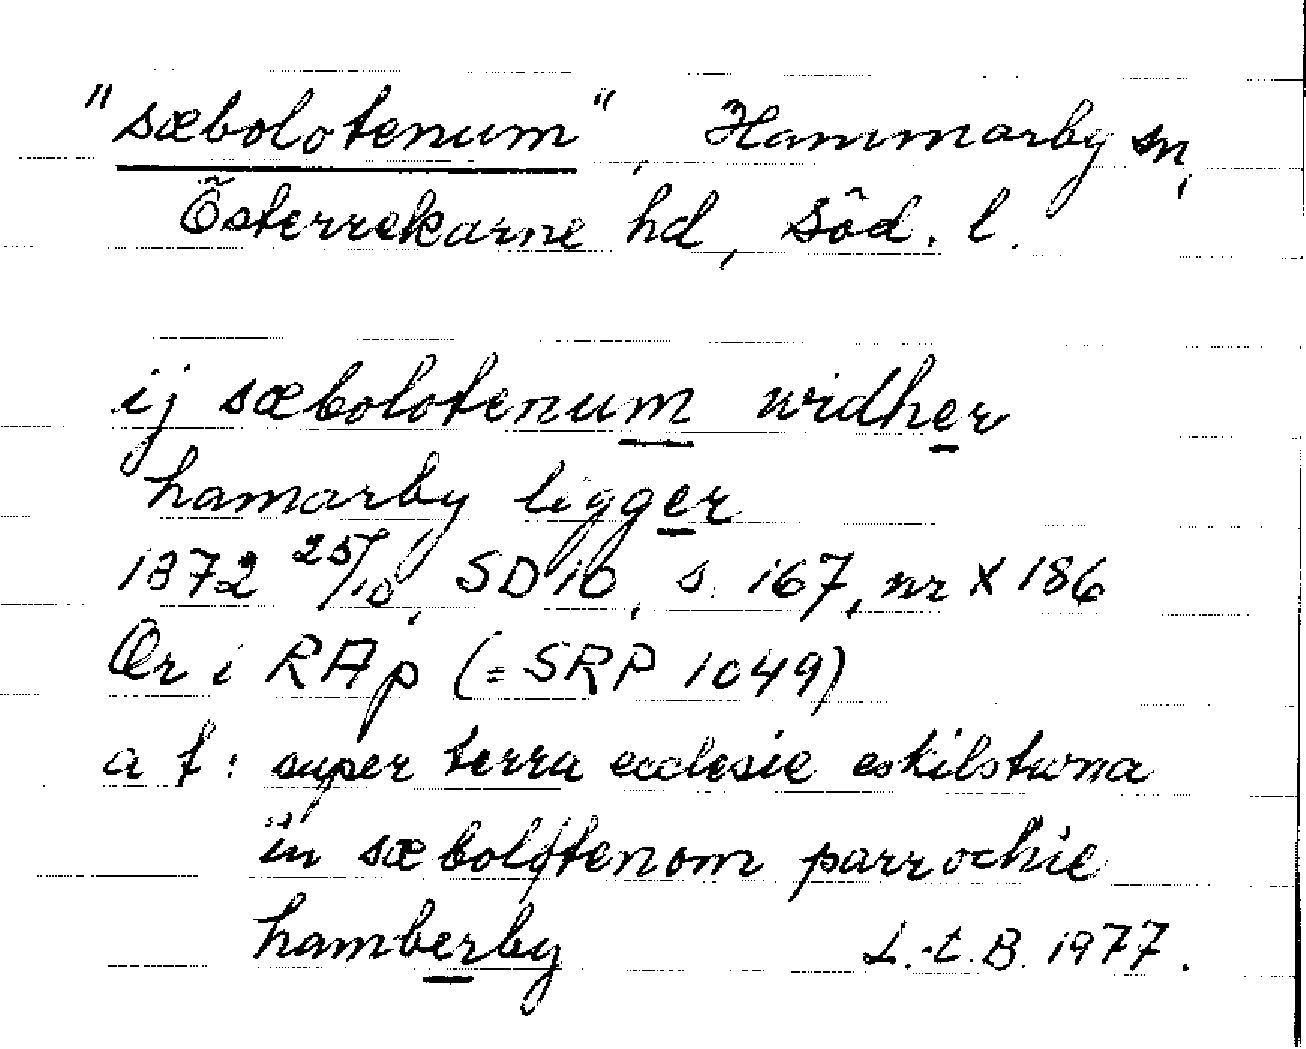 "sæbolotenum", Hammarby sn,
Österrekarne hd, Söd. l.
ij sæbolotenum widher
hamarby ligger
1372 25/10, SD 10, s. 167, nr X 186
Or i RAp (= SRP 1049)
a t: super terra ecclesie eskilstwna
in sæboløtenom parrochie
hamberby L.-t. B. 1977.